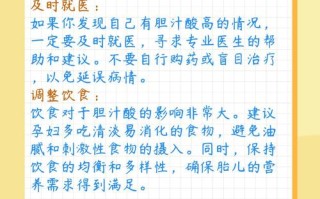 及时就医：
如果你发现自己有胆汁酸高的情况，
一定要及时就医，寻求专业医生的帮
助和建议。不要自行购药或盲目治疗
，以免延误病情。
调整饮食：
饮食对于胆汁酸的影响非常大。建议
孕妇多吃清淡易消化的食物，避免油
腻和刺激性食物的摄入。同时，保持
饮食的均衡和多样性，确保胎儿的营
养需求得到满足。